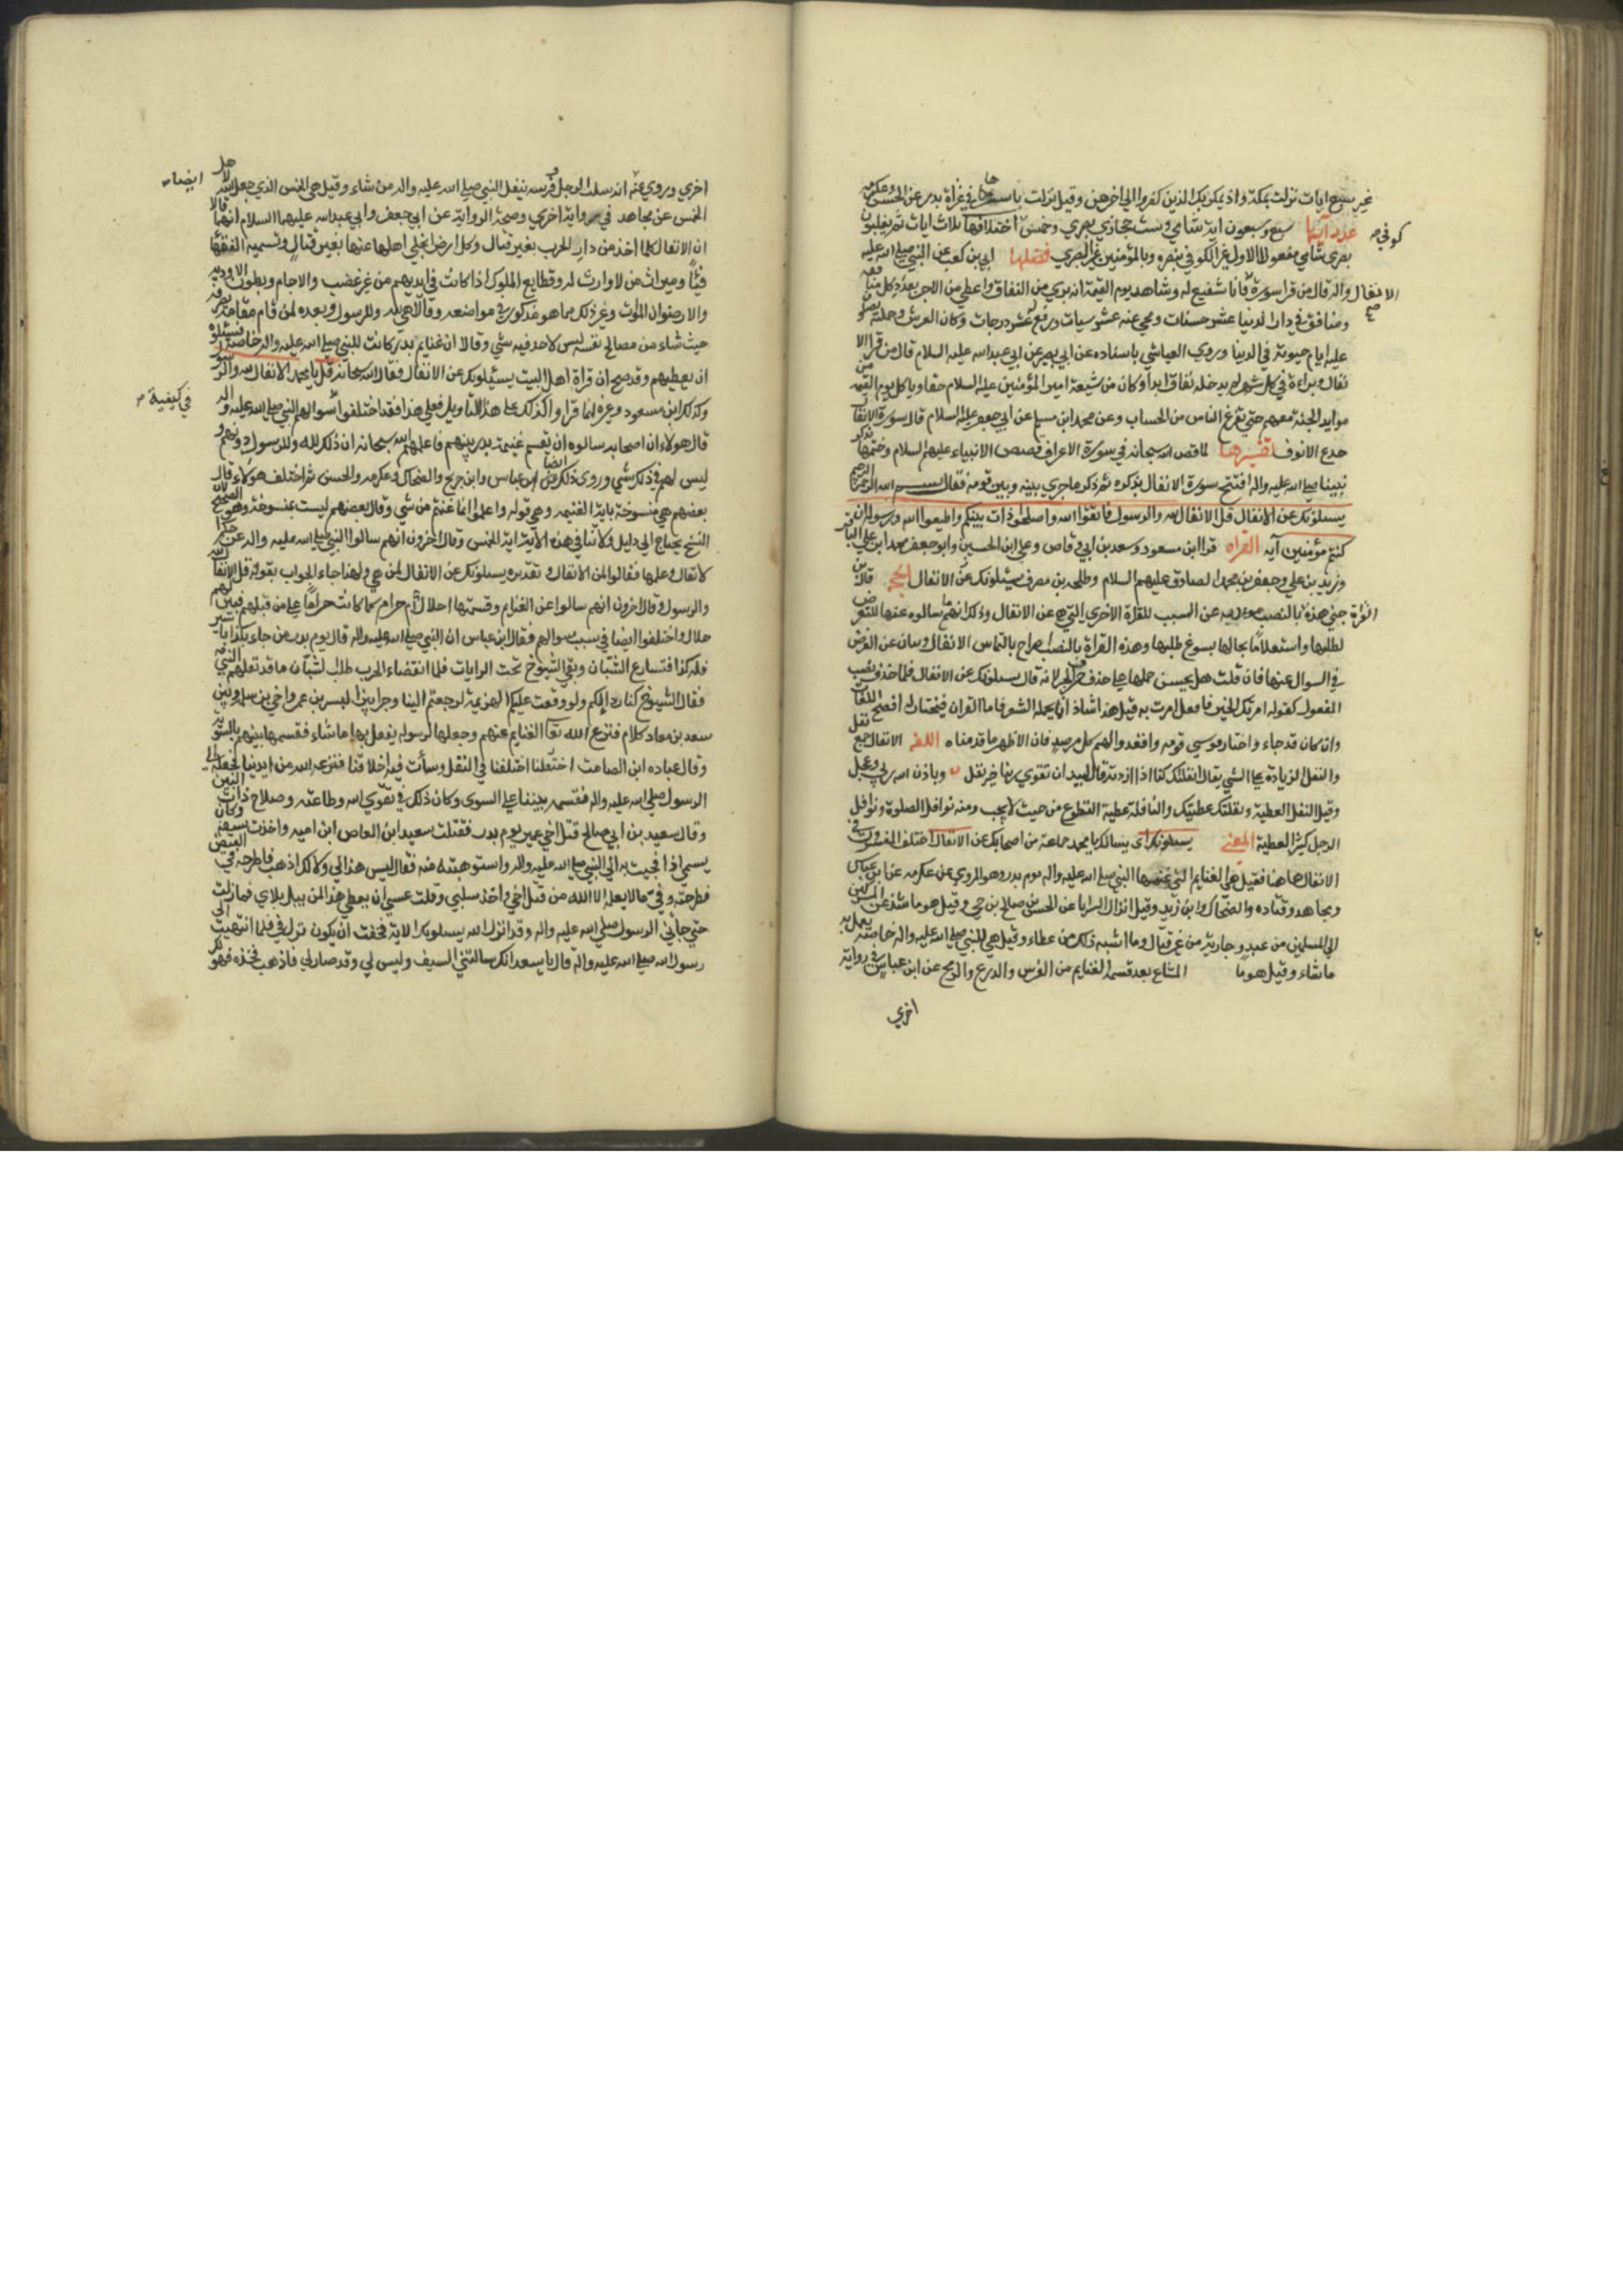 غير سبع ايات نزلت بمكة واذ يمكر بك الذين كفروا الي اخرهن وقيل نزلت باسرها في غزاة بدر عن الحسن وعكرمه
عدد آيها سبع وسبعون اية شامي وست حجازي بصري وخمس كوفي اختلافها ثلاث ايات ثم يغلبون
بصري شامي مفعولا الاول غير الكوفي بنصره وبالمؤمنين غير البصري فضلها ابي بن كعب عن النبي صلى الله عليه
واله قال من قرا سورة الانفال فانا شفيع له وشاهد يوم القيمة انه بري من النفاق واعطي من الاجر بعدد كل منافق
ومنافقة في دار الدنيا عشر حسنات ومحي عنه عشر سيات ورفع له عشر درجات وكان العرش وحملته يصلون
عليه ايام حيوته في الدنيا وروي العياشي باسناده عن ابي بصير عن ابي عبد الله عليه السلام قال من قرا الا
نفال وبراءة في كل شهر لم يدخله نفاق ابدا وكان من شيعة امير المؤمنين عليه السلام حقا وياكل يوم القيمة من
موايد الجنة معهم حتى يفرغ الناس من الحساب وعن محمد ابن مسلم عن ابي جعفر عليه السلام قال سورة الانفال
جدع الانوف تفسيرها لما قص الله سبحانه في سورة الاعراف قصص الانبياء عليهم السلام وختمها بذكر
نبينا صلى الله عليه واله افتتح سورة الانفال بذكره ثم ذكر ما جري بينه وبين قومه فقال بسم الله الرحمن الرحيم
يسئلونك عن الانفال قل الانفال لله والرسول فاتقوا الله واصلحوا ذات بينكم واطيعوا الله ورسوله ان
كنتم مؤمنين آية القراه قرا ابن مسعود وسعد بن ابي وقاص وعلي ابن الحسين وابو جعفر محمد ابن علي الباقر
وزيد بن علي وجعفر بن محمد الصادق عليهم السلام وطلحه بن مصرف يسئلونك الانفال الحجة قال ابن
جني هذه القراة بالنصب مؤديه عن السبب للقراة الاخري التي هي عن الانفال وذلك انهم انما سالوه عنها تعرضا
لطلبها واستعلاما بحالها هل يسوغ طلبها وهذه القراة بالنصب اصراح بالتماس الانفال وبيان عن الغرض
في السوال عنها فان قلت هل يحسن حملها على حذف حرف الجر لانه قال يسئلونك عن الانفال فلما حذف عن نصب
المفعول كقوله امرتك الخير فافعل ما امرت به قيل هذا شاذ انما يحمله الشعر فاما القران فيختار له افصح اللغات
وان كان قد جاء واختار موسي قومه واقعدوا لهم كل مرصد فان الاظهر ما قدمناه اللغه الانفال جمع نفل
والنفل الزيادة على الشي يقال نفلتك كذا اذا زدته قال لبيد ان تقوي ربنا خير نفل وباذن الله ريثي وعجل
وقيل النفل العطية ونفلتك عطيتك والنافلة عطية التطوع من حيث لا يجب ومنه نوافل الصلوة ونوافل
الرجل كثير العطية المعني يسئلونك اي يسالك يا محمد جماعة من اصحابك عن الانفال اختلف المفسرون في
الانفال هاهنا فقيل هي الغنايم التي غنمها النبي صلى الله عليه واله يوم بدر وهو المروي عن عكرمه عن ابن عباس
ومجاهد وقتاده والضحاك وابن زيد وقيل انفال السرايا عن الحسن بن صالح بن حي وقيل هو ما شذ عن المشركين
الي المسلمين من عبد وجارية من غير قتال وما اشبه ذلك عن عطاء وقيل هي للنبي صلى الله عليه واله خاصة يعمل به
ما شاء وقيل هو ما المتاع بعد قسمة الغنايم من الفرس والدرع والرمح عن ابن عباس في رواية
اخري
اخري وروي عنه ايضا انه سلب الرجل وفرسه ينفل النبي صلى الله عليه واله من شاء وقيل هي الخمس الذي جعله الله لاهل
الخمس عن مجاهد في رواية اخري وصحة الرواية عن ابي جعفر وابي عبد الله عليهما السلام انهما قالا
ان الانفال كلما اخذ من دار الحرب بغير قتال وكل ارض انجلي اهلها عنها بغير قتال وتسميه الفقهاء
فيئا وميراث من لا وارث له وقطايع الملوك اذا كانت في ايديهم من غير غصب والاجام وبطون الاودية
والارضون الموات وغير ذلك مما هو مذكور في مواضعه وقالا هي لله وللرسول وبعده لمن قام مقامه يصرفه
حيث شاء من مصالح نفسه ليس لاحد فيه شي وقالا ان غنايم بدر كانت للنبي صلى الله عليه واله خاصة فسئلوه
ان يعطيهم وقد صح ان قراة اهل البيت يسئلونك عن الانفال فقال الله سبحانه قل يا محمد الانفال لله والرسول
وكذلك ابن مسعود وغيره انما قراوا كذلك على هذا التاويل فعلي هذا فقد اختلفوا في كيفية سوالهم النبي صلى الله عليه واله
قال هولاء ان اصحابه سالوه ان يقسم غنيمة بدر بينهم فاعلمهم الله سبحانه ان ذلك لله وللرسول دونهم و
ليس لهم في ذلك شي وروي ذلك ايضا عن ابن عباس وابن جريج والضحاك وعكرمه والحسن ثم اختلف هولاء قال
بعضهم هي منسوخة باية الغنيمه وهي قوله واعلموا انما غنمتم من شي وقال بعضهم ليست بمنسوخة وهو الصحيح لان
النسخ يحتاج الي دليل ولا تنافي هذه الاية اية الخمس وقال اخرون انهم سالوا النبي صلى الله عليه واله عن حكم ا
لانفال وعلمها فقالوا لمن الانفال و تقديره يسئلونك عن الانفال لمن هي ولهذا جاء الجواب بقوله قل الانفال لله
والرسول وقال اخرون انهم سالوا عن الغنايم وقسمتها احلال ام حرام كما كانت حراما على من قبلهم فبين لهم
حلال واختلفوا ايضا في سبب سوالهم فقال ابن عباس ان النبي صلى الله عليه واله قال يوم بدر من جاء بكذا
فله كذا فتسارع الشبان وبقي الشيوخ تحت الرايات فلما انقضاء الحرب طلب الشبان ما قد نفلهم النبي به
فقال الشيوخ كنا رداءلكم ولو وقعت عليكم الهزيمة لرجعتم الينا وجرا بين ابي اليسر بن عمرو اخي بني سلمه وبين
سعد بن معاد كلام فنزع الله تعا الغنايم عنهم وجعلها لرسوله يفعل بها ما شاء فقسمها بينهم بالسوية
وقال عباده ابن الصامت اختلفنا في النفل وسأت فيه اخلاقنا فنزعه الله من ايدينا فجعله الي
الرسول صلى الله عليه واله فقسمه بيننا على السوي وكان ذلك في تقوي الله وطاعته وصلاح ذات البين
وقال سعيد بن ابي صالح قتل اخي عمير يوم بدر فقتلت سعيد ابن العاص ابن اميه واخذت سيفه وكان
يسمي فجئت به الي النبي صلى الله عليه واله واستوهبته منه فقال ليس هذا لي ولا لك اذهب فاطرحه في القبض
فطرحته وفي ما لا يعلم الا الله من قتل اخي واخذ سلبي وقلت عسي ان يعطي هذا لمن لم يبل بلاي فما زلت
حتي جأني الرسول صلى الله عليه واله وقد انزل الله يسئلونك الاية فخفت ان يكون نزل في فلما انتهيت الي
رسول الله صلى الله عليه واله قال يا سعد انك سالتني السيف وليس لي وقد صار لي فاذهب فخذه فهو لك